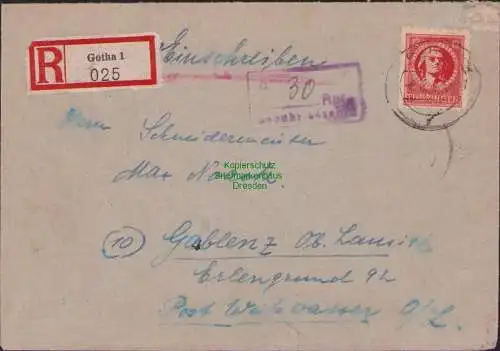 Einschreiben
R
Gotha 1
025
30
Herrn
Schneidermeister
Max
Kopierschutz
Briefmarkenhaus
Dresden
(10) Gablenz Ob. Lausitz
Erlengrund 92
Post Weißwasser O/L.